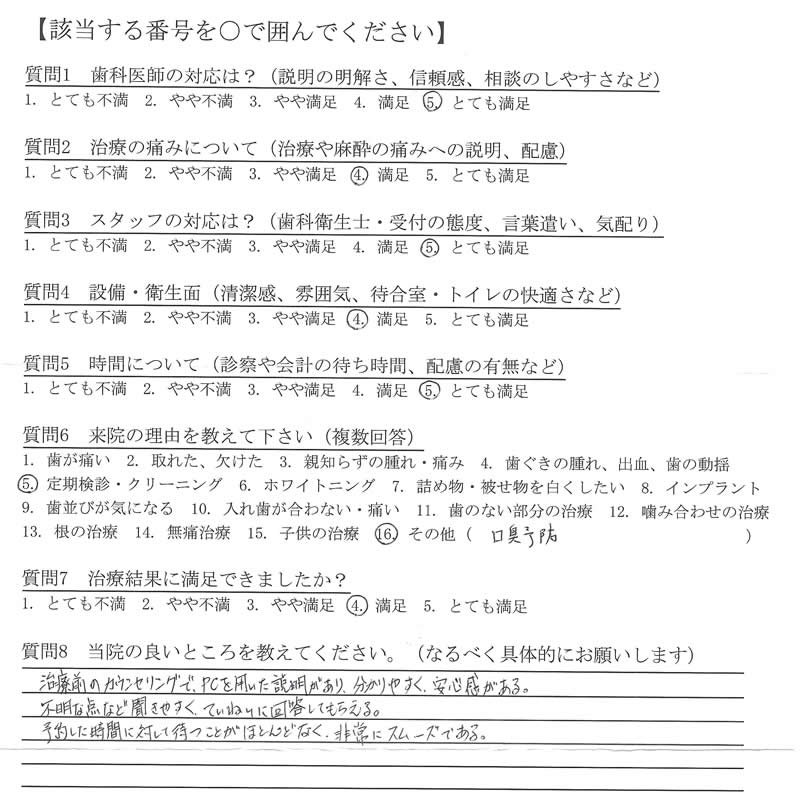 【該当する番号を○で囲んでください】
質問1　歯科医師の対応は？（説明の明解さ、信頼感、相談のしやすさなど）
1. とても不満　2. やや不満　3. やや満足　4. 満足　5. とても満足
質問2　治療の痛みについて（治療や麻酔の痛みへの説明、配慮）
1. とても不満　2. やや不満　3. やや満足　4. 満足　5. とても満足
質問3　スタッフの対応は？（歯科衛生士・受付の態度、言葉遣い、気配り）
1. とても不満　2. やや不満　3. やや満足　4. 満足　5. とても満足
質問4　設備・衛生面（清潔感、雰囲気、待合室・トイレの快適さなど）
1. とても不満　2. やや不満　3. やや満足　4. 満足　5. とても満足
質問5　時間について（診察や会計の待ち時間、配慮の有無など）
1. とても不満　2. やや不満　3. やや満足　4. 満足　5. とても満足
質問6　来院の理由を教えて下さい（複数回答）
1. 歯が痛い　2. 取れた、欠けた　3. 親知らずの腫れ・痛み　4. 歯ぐきの腫れ、出血、歯の動揺
5. 定期検診・クリーニング　6. ホワイトニング　7. 詰め物・被せ物を白くしたい　8. インプラント
9. 歯並びが気になる　10. 入れ歯が合わない・痛い　11. 歯のない部分の治療　12. 噛み合わせの治療
13. 根の治療　14. 無痛治療　15. 子供の治療　16. その他（ 口臭予防 ）
質問7　治療結果に満足できましたか？
1. とても不満　2. やや不満　3. やや満足　4. 満足　5. とても満足
質問8　当院の良いところを教えてください。（なるべく具体的にお願いします）
治療前のカウンセリングで、PCを用いた説明があり、分かりやすく、安心感がある。
不明な点など聞きやすく、ていねいに回答してもらえる。
予約した時間に対して待つことがほとんどなく、非常にスムーズである。